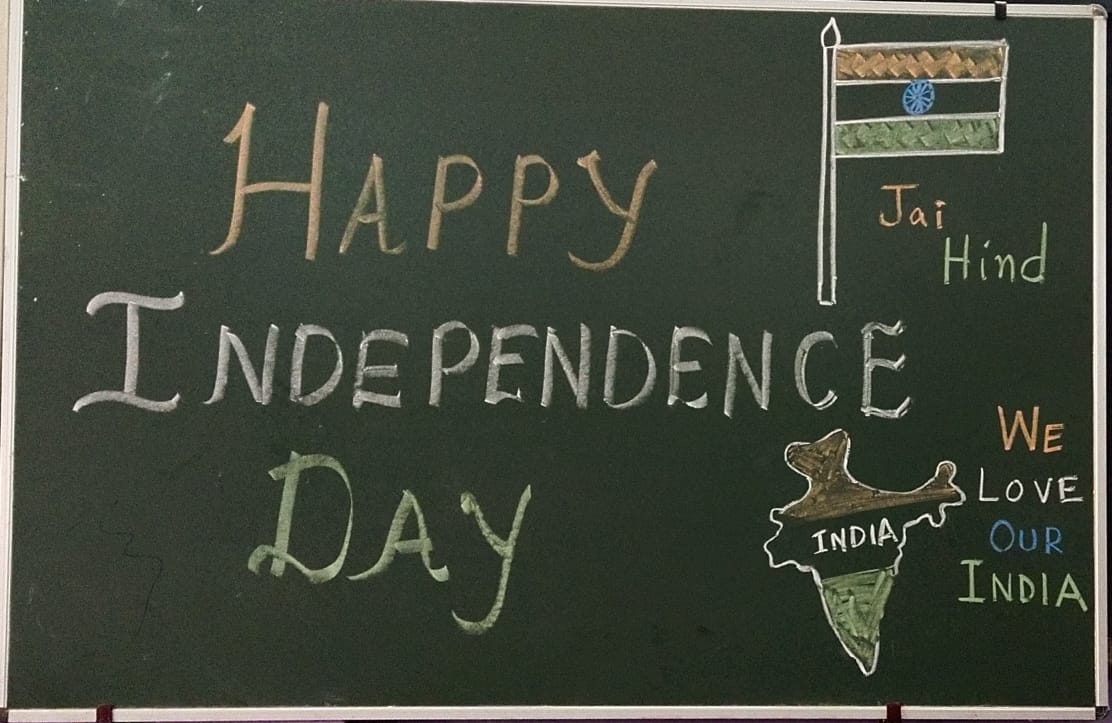 HAPPY
INDEPENDENCE
DAY
Jai
Hind
INDIA
WE
LOVE
OUR
INDIA